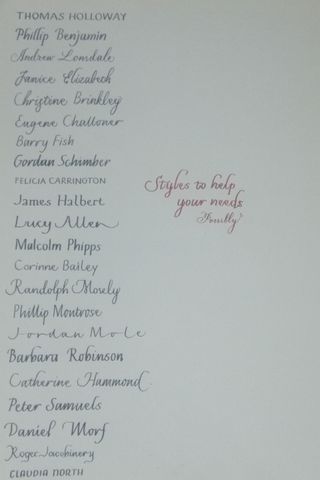 THOMAS HOLLOWAY
Phillip Benjamin
Andrew Lonsdale
Janice Elizabeth
Christine Brinkley
Eugene Challoner
Barry Fish
Gordan Schimber
FELICIA CARRINGTON
James Halbert
Lucy Allen
Malcolm Phipps
Corinne Bailey
Randolph Mosely
Phillip Montrose
Jordan Mole
Barbara Robinson
Catherine Hammond
Peter Samuels
Daniel Morf
Roger Jacobinery
CLAUDIA NORTH
Styles to help
your needs